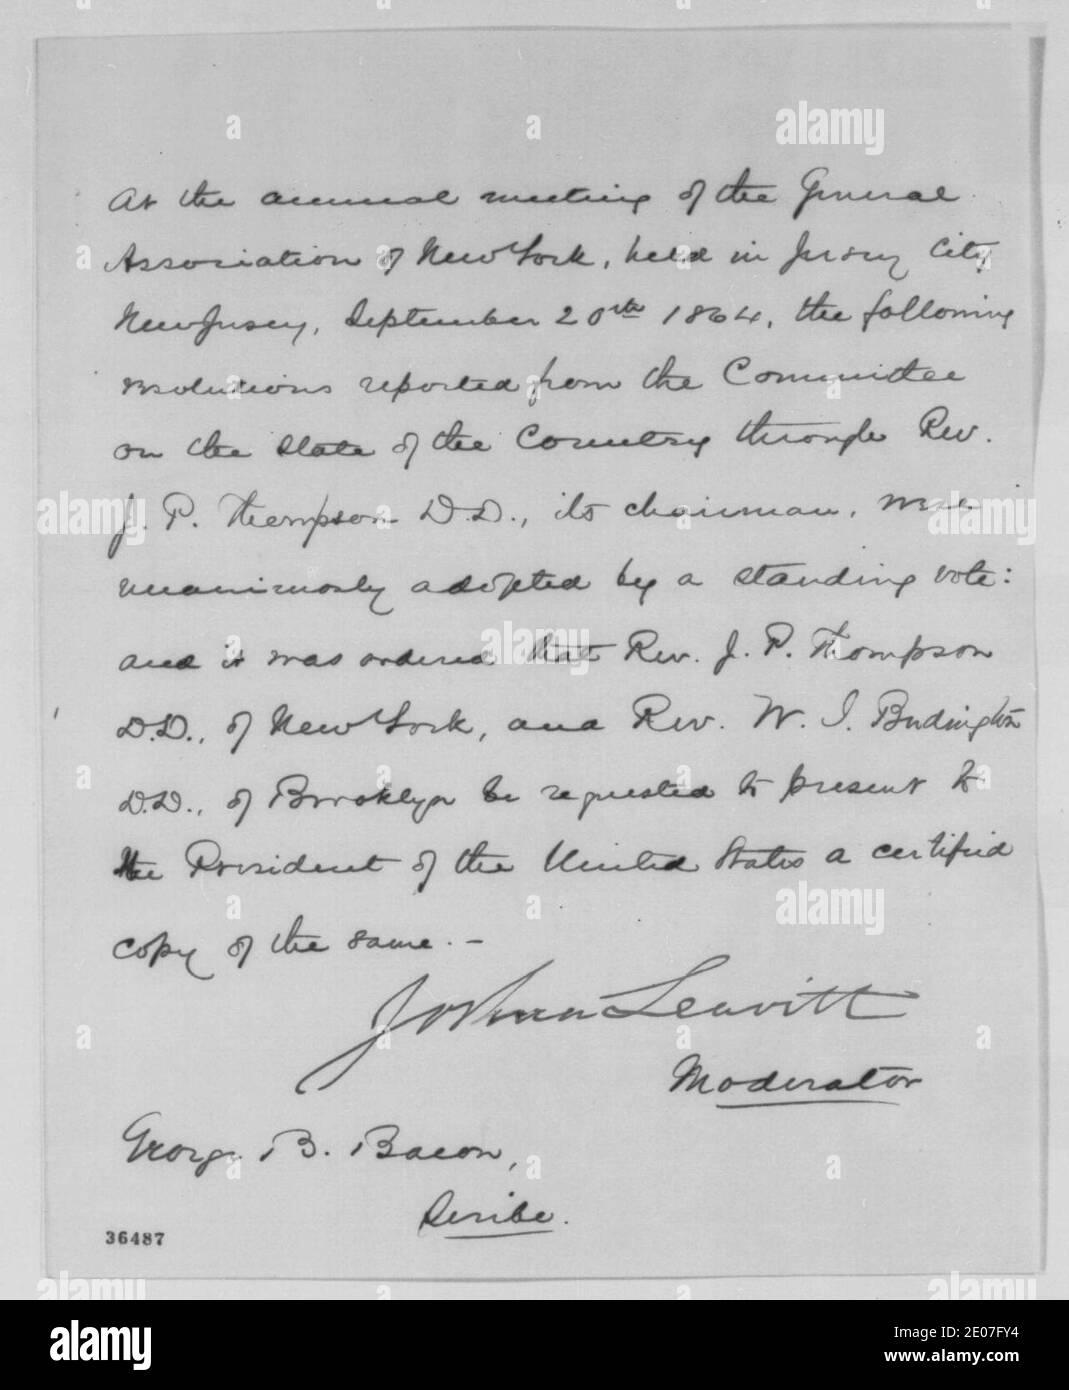 At the annual meeting of the General
Association of New York, held in Jersey City
New Jersey, September 20th 1864, the following
resolutions reported from the Committee
on the State of the Country through Rev.
J. P. Thompson D.D., its chairman, were
unanimously adopted by a standing vote:
and it was ordered that Rev. J. P. Thompson
D.D., of New York, and Rev. W. I. Budington
D.D., of Brooklyn be requested to present to
the President of the United States a certified
copy of the same. —
Joshua Leavitt
Moderator
George B. Bacon,
Scribe.
36487
alamy
Image ID: 2E07FY4
www.alamy.com